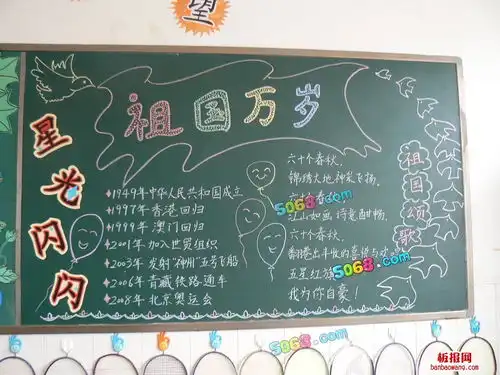 望
祖国万岁
星光闪闪
1949年中华人民共和国成立
1997年香港回归
1999年澳门回归
2001年加入世贸组织
2003年发射"神州"五号飞船
2006年青藏铁路通车
2008年北京奥运会
六十个春秋,
锦绣大地神采飞扬,
六十个春秋,
江山如画诗意酣畅,
六十个春秋,
翻卷出丰收的喜悦与欢
五星红旗
我为你自豪!
祖国颂歌
5068.com
5068.com
5068.com
板报网
banbaowang.com